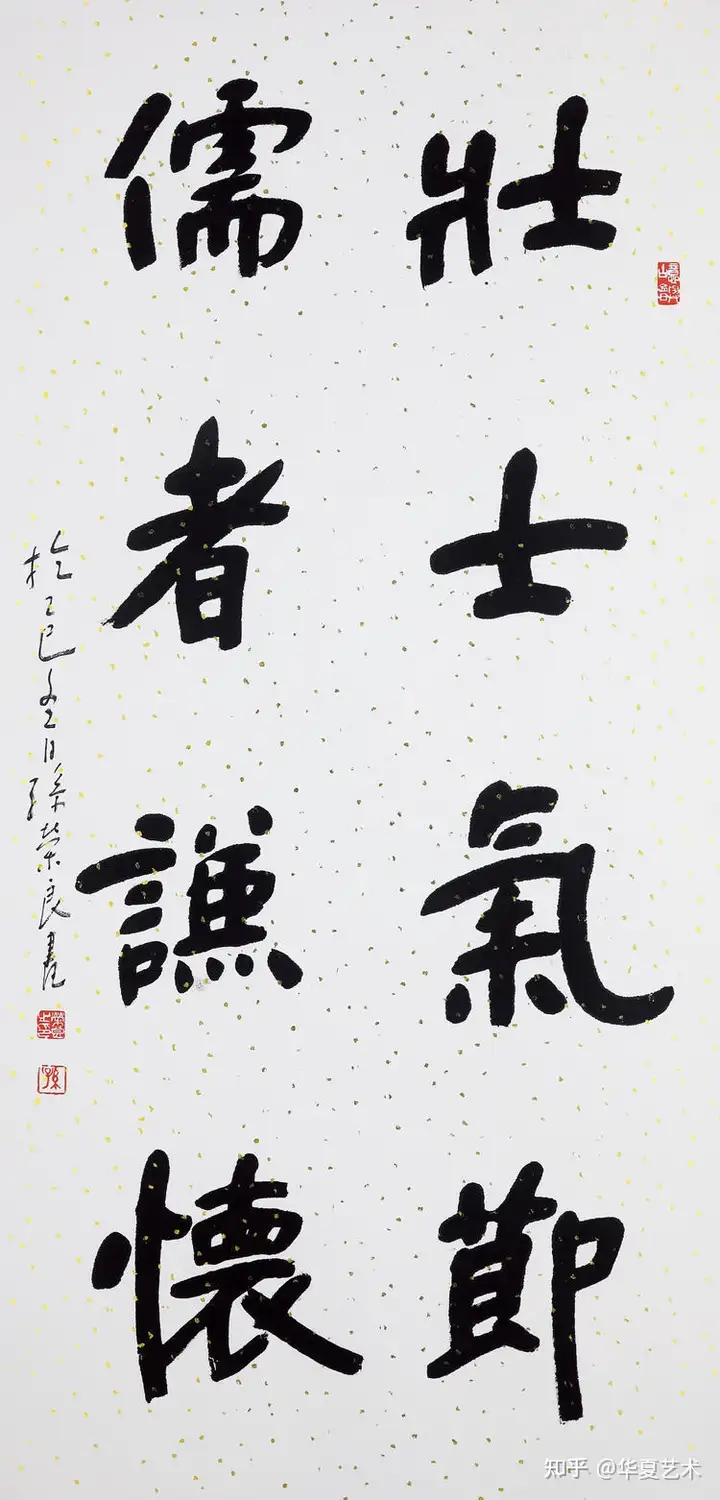 壯士氣節
儒者謙懷
於乙巳冬日孫榮良書
孫
知乎 @华夏艺术